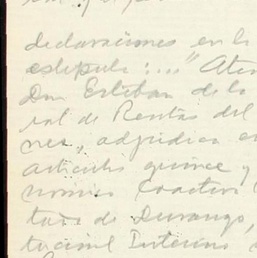 declaraciones en la
estipula:..." Aten
Don Esteban de la
ial de Rentas del
nes, adjudica en
artículo quince y
nomico Coactivo
tado de Durango,
tucional Interino